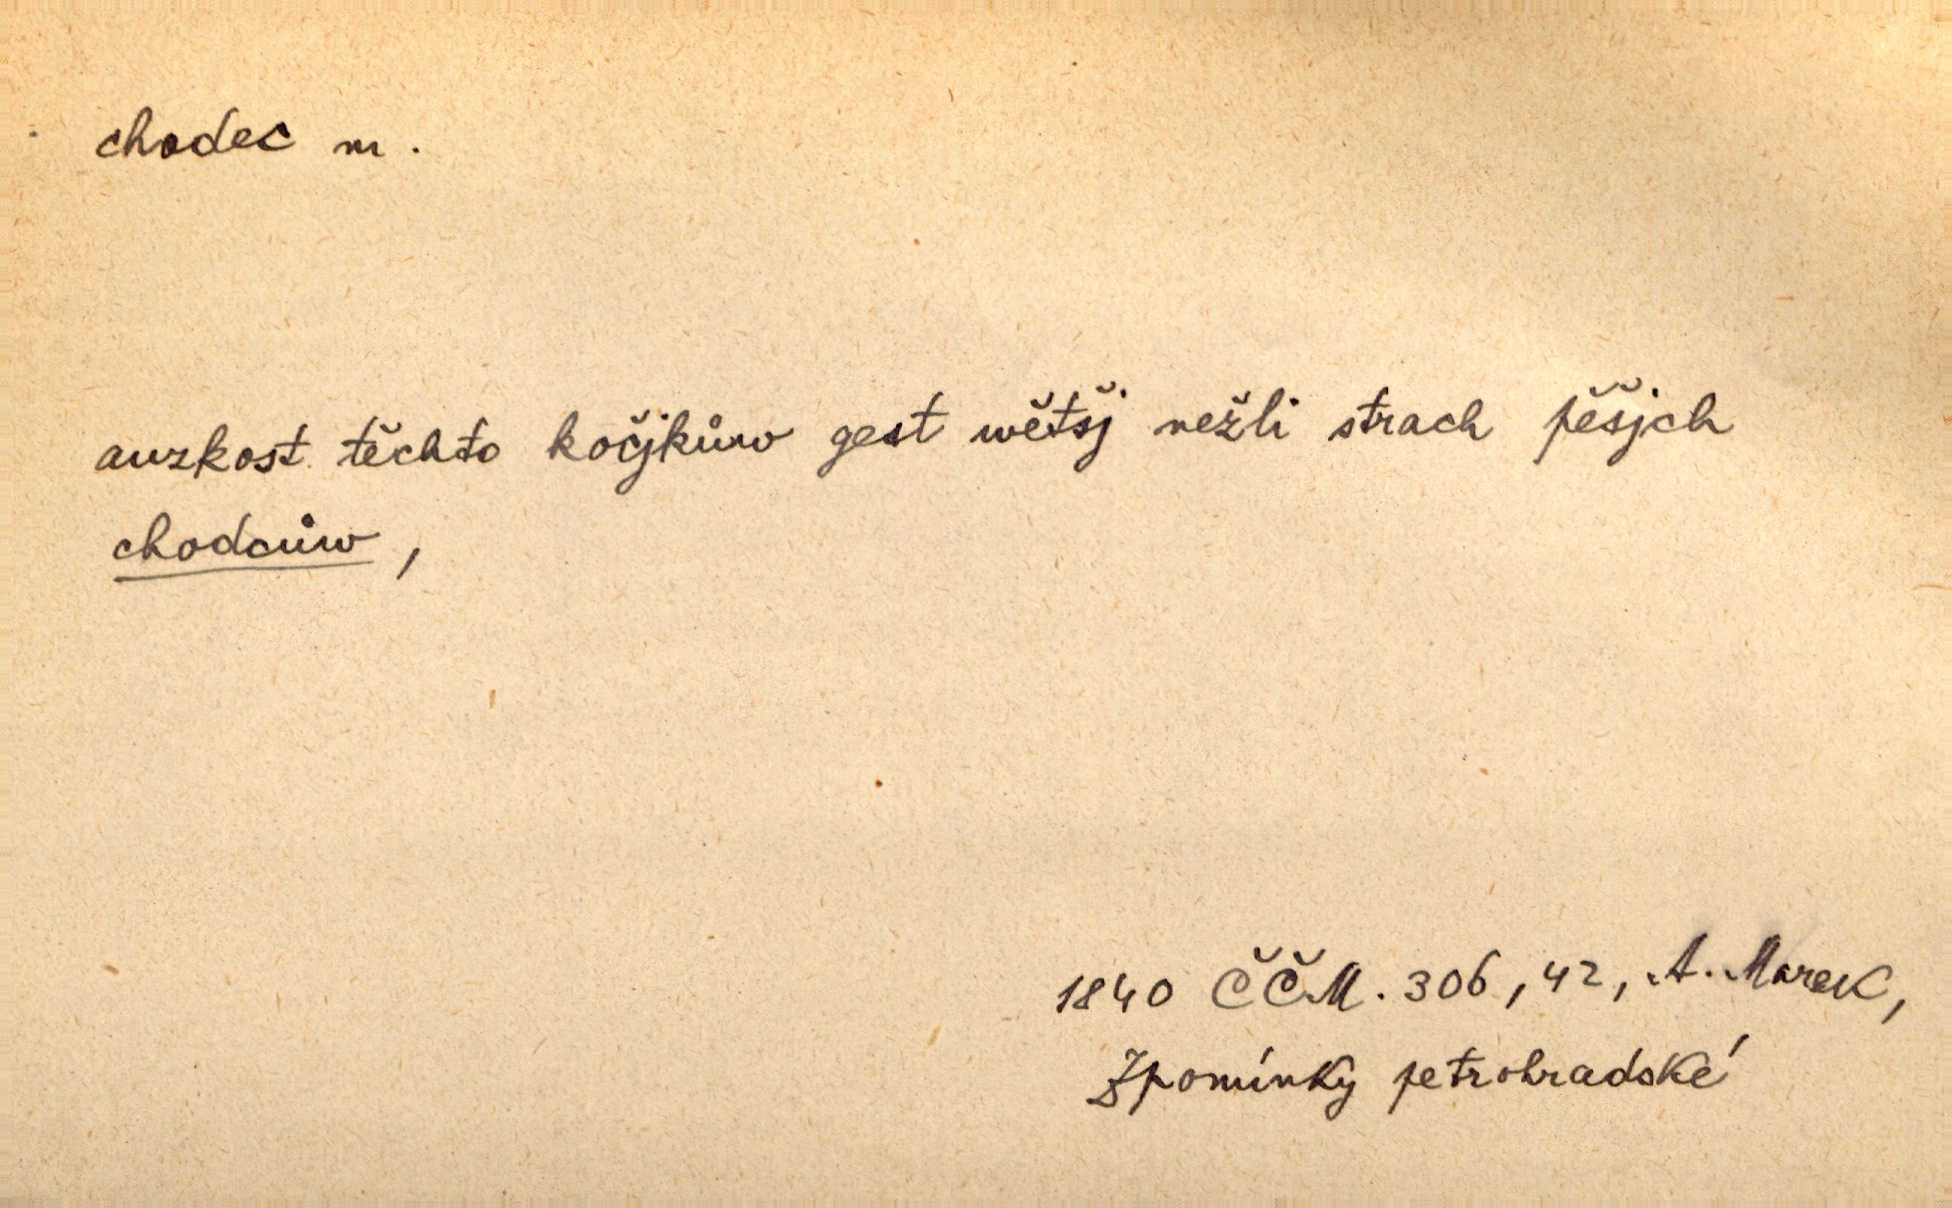 chodec m.
auzkost těchto kočjkůw gest wětšj nežli strach pěšjch
chodcůw,
1840 ČČM. 306, 42, A. Marek,
Zpomínky petrohradské